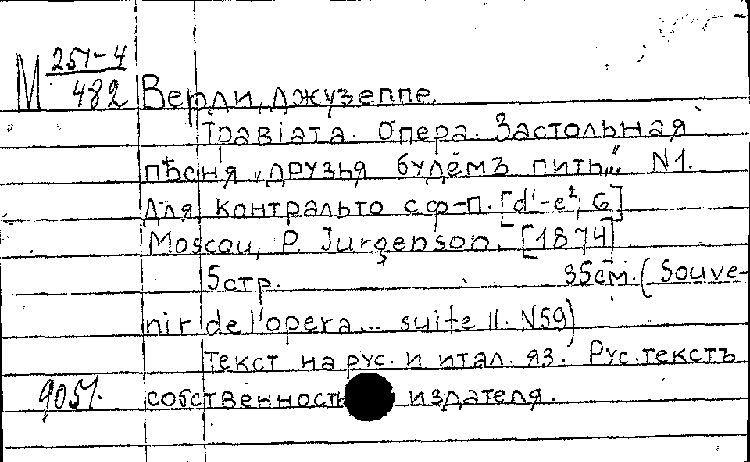 М 251-4
482 Верди, Джузеппе.
Травіата. Опера. Застольная
пѣсня „Друзья будемъ пить..." N1.
Для контральто с ф-п. [d¹-e², G]
Moscou, P. Jurgenson. [1874]
5 стр. 35 см. (Souve-
nir de l'opera... suite II. N59)
Текст на рус. и итал. яз. Рус. текстъ
9051. собственность издателя.